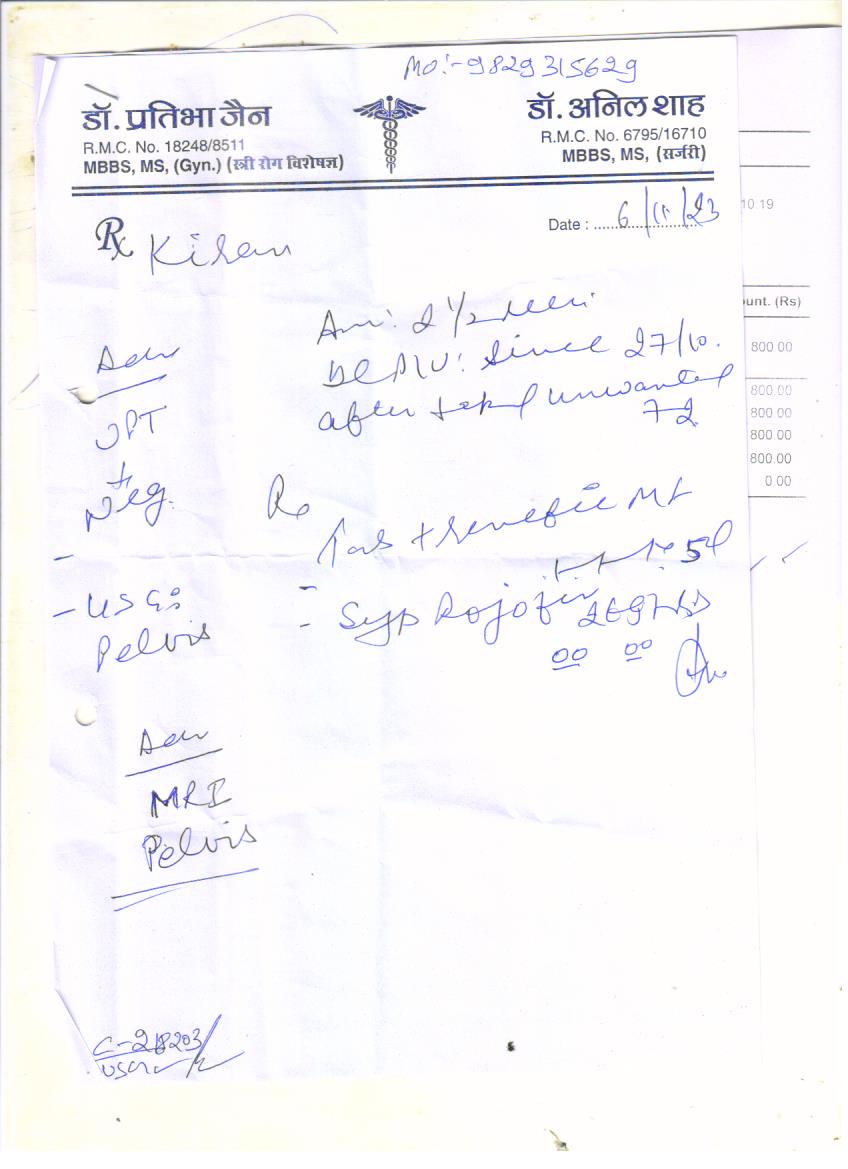 Mo:- 9829315629
डॉ. प्रतिभा जैन
R.M.C. No. 18248/8511
MBBS, MS, (Gyn.) (स्त्री रोग विशेषज्ञ)
डॉ. अनिल शाह
R.M.C. No. 6795/16710
MBBS, MS, (सर्जरी)
Date : 6/11/23
Rx Kiran
10:19
unt. (Rs)
800.00
800.00
800.00
800.00
800.00
0.00
2 1/2
since 27/10.
after unwanted
72
Adv
UPT
Neg.
- USG:
Pelvis
Rx
MF
5d
- Syp
00 00
Adv
MRI
Pelvis
C-218203
USG